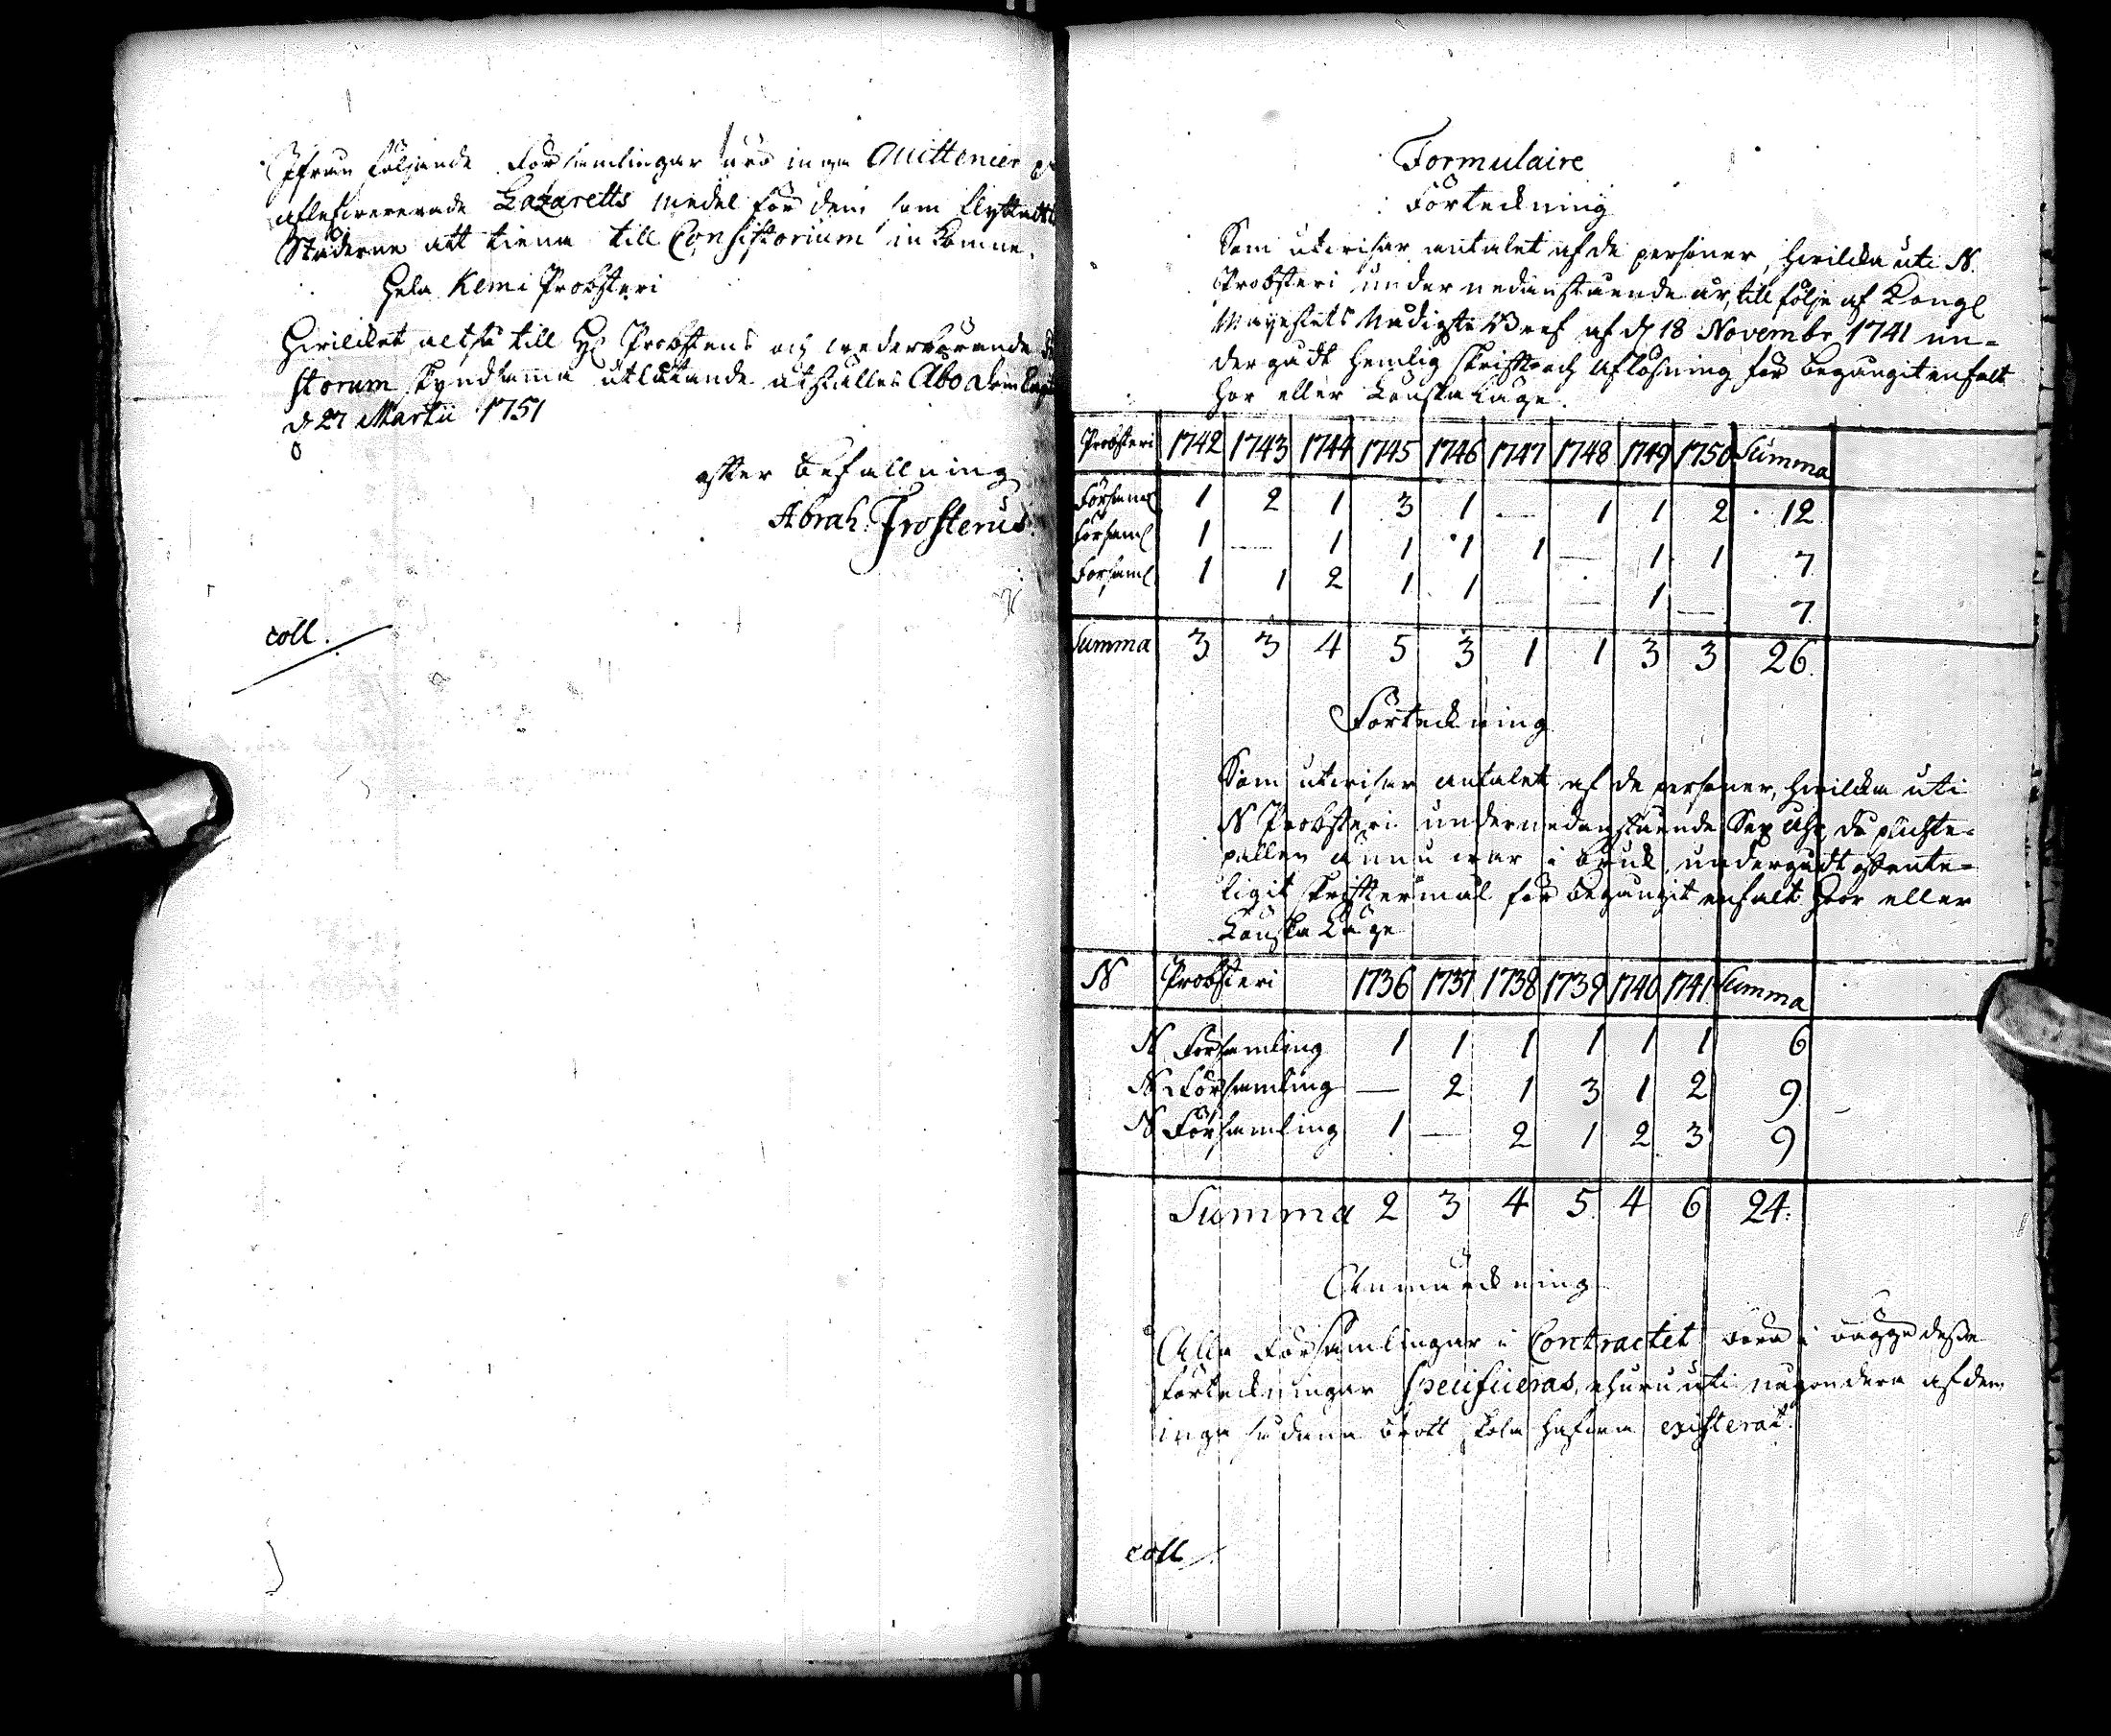 Ifrån följande Församlingar äro inga Quittencier på
aflefwererade Lazaretts medel för dem som flyttadt
Städerne att tiena till Consistorium inkomne.
Hela Kemi Probsteri
Hwilcket altså till H: Probstens och wederbörande
storum skyndsamma utlåtande utställes Åbo
d 27 Martii 1751
efter befallning
Abrah: Frosterus.
coll.
Formulaire
Förteckning
Som utwisar antalet af de personer, hwilcka uti N.
Probsteri under nedanstående år, till följe af Kongl
Mayestets Nådigste Bref af d 18 Novembr 1741 un-
dergådt hemlig skrifft och aflösning för begångit enfalt
hor eller Lönska Läge.
Probsteri 1742 1743 1744 1745 1746 1747 1748 1749 1750 Summa
Församl 1 2 1 3 1 — 1 1 2 12
Församl 1 — 1 1 1 1 — 1 1 7
Församl 1 1 2 1 1 — — 1 — 7
Summa 3 3 4 5 3 1 1 3 3 26.
Förteckning
Som utwisar antalet af de personer, hwilcka uti
N Probsteri under nedanstående Sex åhr, då plichte-
pallen ännu war i bruk, undergådt offente-
ligit skrifftermål för begångit enfalt Hoor eller
Lönska Läge
N Probsteri 1736 1737 1738 1739 1740 1741 Summa
N Församling 1 1 1 1 1 1 6
N Församling — 2 1 3 1 2 9
N Församling 1 — 2 1 2 3 9
Summa 2 3 4 5 4 6 24.
Anmärckning
Alla Församlingar i Contractet böra i bägge desse
förteckningar specificeras, ehuru uti någondera af dem
inga sådana brott skola hafwa existerat.
coll